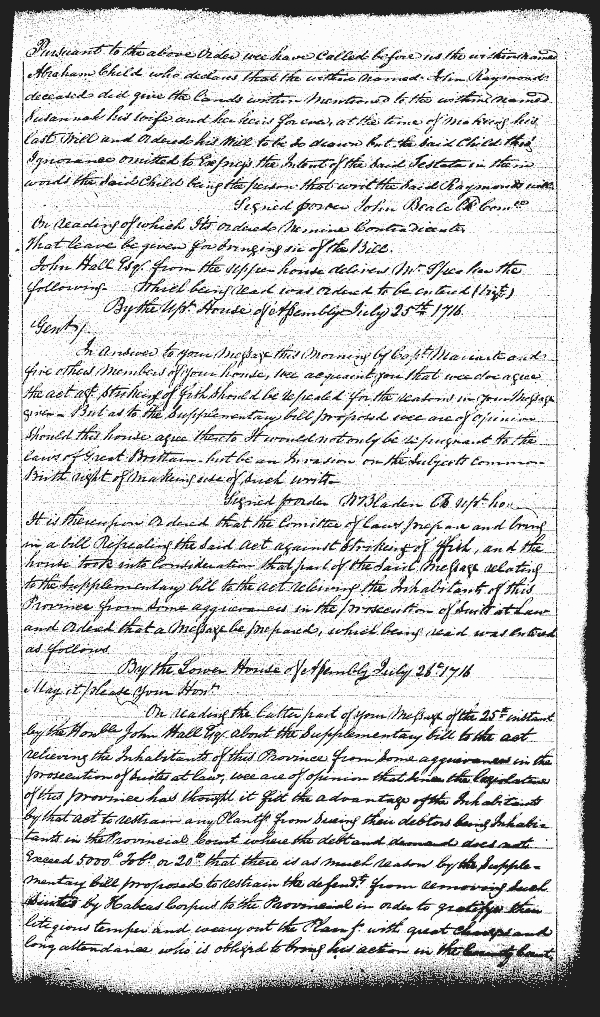 Pursuant to the above Order wee have Called before us the within named
Abraham Child who declares that the within named John Raymond
deceased did give the Lands within Mentioned to the within named
Susannah his wife and her heirs forever, at the time of Making his
last Will and ordered his Will to be so drawn but the Said Child thro'
Ignorance omitted to Express the Intent of the Said Testator in them
words the Said Child being the person that writ the Said Raymonds will.
Signed p order John Beale Cl Com
On reading of which Its ordered Nemine Contradicente
that leave be given for bringing in of the Bill.
John Hall Esqr. from the upper house delivers Mr. Speaker the
following. Which being read was ordered to be entered (Vizt.)
By the Upr. House of Assembly July 25th. 1716
Gent.
In Answer to your Message this Morning by Capt. and
five other Members of your house, wee acquaint you that wee doe agree
the act agt. Stricking of fish Should be repealed for the reasons in your Message
given - But as to the Supplementary bill proposed wee are of opinion
Should this house agree thereto It would not only be repugnant to the
Laws of Great Brittain but be an Invasion on the Subjects Common
Birth right of Making use of Such writts
Signed p order W Bladen Cl upr. hou
It is thereupon ordered that the Comittee of Laws prepare and bring
in a bill Repealing the Said act against Stricking of ffish, and the
house took into Consideration that part of the Said Message relating
to the Supplementary bill to the act relieving the Inhabitants of this
Province from Some aggrievances in the prosecution of Suits at Law
and ordered that a Message be prepared, which being read was entered
as follows
By the Lower House of Assembly July 26th 1716
May it please your Honrs
On reading the Latter part of your Message of the 25th instant
by the Honble John Hall Esqr. about the Supplementary bill to the act
relieving the Inhabitants of this Province from Some aggrievances in the
prosecution of Suites at Law, wee are of opinion that Since the Legislature
of this province has thought it for the advantage of the Inhabitants
by that act to restrain any Plantf. from Sueing their debtors being Inhabi-
tants in the Provincial Court where the debt and demand does not
Exceed 5000 lb Tobo. or 20 that there is as much reason by the Supple-
mentary bill proposed to restrain the defendt. from removing Such
Suites by Habeas Corpus to the Provincial in order to gratifye their
litegious temper and weary out the Plantf. with great charges and
long attendance who is obliged to bring his action in the County Court,